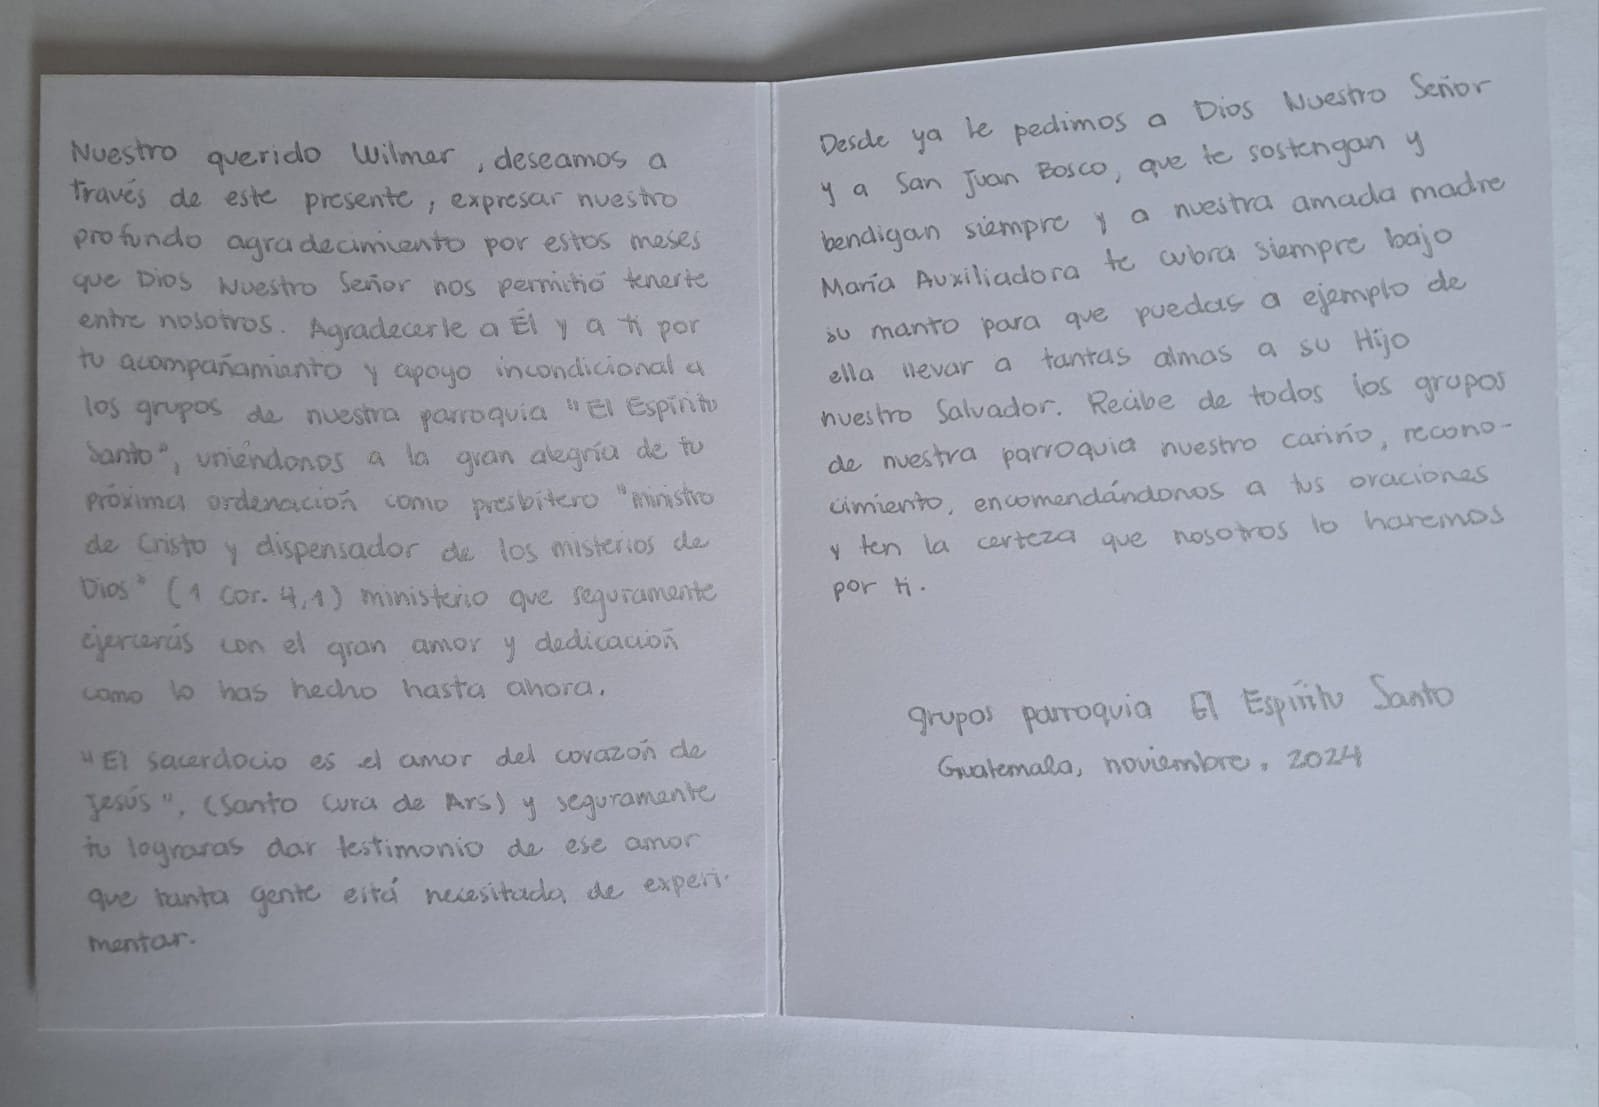 Nuestro querido Wilmer, deseamos a
través de este presente, expresar nuestro
profundo agradecimiento por estos meses
que Dios Nuestro Señor nos permitió tenerte
entre nosotros. Agradecerle a Él y a ti por
tu acompañamiento y apoyo incondicional a
los grupos de nuestra parroquia "El Espíritu
Santo", uniéndonos a la gran alegría de tu
próxima ordenación como presbítero "ministro
de Cristo y dispensador de los misterios de
Dios" (1 Cor. 4,1) ministerio que seguramente
ejercerás con el gran amor y dedicación
como lo has hecho hasta ahora.
"El sacerdocio es el amor del corazón de
Jesús", (Santo Cura de Ars) y seguramente
tu lograras dar testimonio de ese amor
que tanta gente está necesitada de experi-
mentar.
Desde ya le pedimos a Dios Nuestro Señor
y a San Juan Bosco, que te sostengan y
bendigan siempre y a nuestra amada madre
María Auxiliadora te cubra siempre bajo
su manto para que puedas a ejemplo de
ella llevar a tantas almas a su Hijo
nuestro Salvador. Recibe de todos los grupos
de nuestra parroquia nuestro cariño, recono-
cimiento, encomendándonos a tus oraciones
y ten la certeza que nosotros lo haremos
por ti.
grupos parroquia El Espíritu Santo
Guatemala, noviembre, 2024